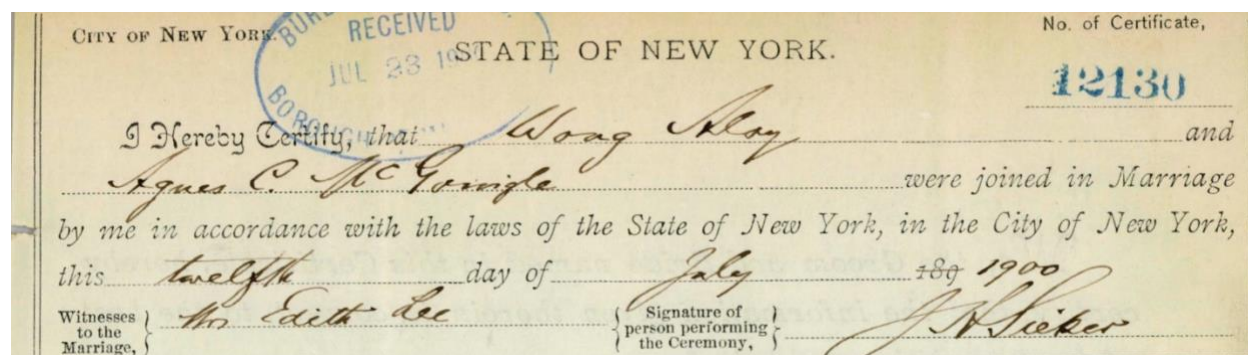 CITY OF NEW YORK.
RECEIVED
JUL 23
STATE OF NEW YORK.
No. of Certificate,
12130
I Hereby Certify, that Wong Aloy and
Agnes C. McGonigle were joined in Marriage
by me in accordance with the laws of the State of New York, in the City of New York,
this twelfth day of July 189 1900
Witnesses to the Marriage, Edith Lee
Signature of person performing the Ceremony, J H Sieker